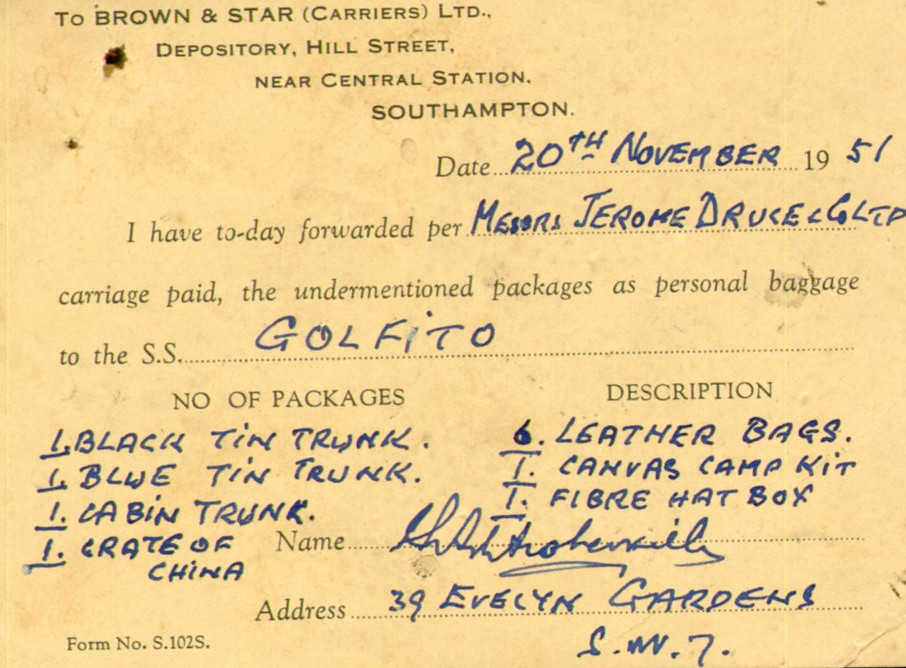 To BROWN & STAR (CARRIERS) LTD.,
DEPOSITORY, HILL STREET,
NEAR CENTRAL STATION.
SOUTHAMPTON.
Date 20TH NOVEMBER 19 51
I have to-day forwarded per MESSRS JEROME DRUCE & CO LTD
carriage paid, the undermentioned packages as personal baggage
to the S.S. GOLFITO
NO OF PACKAGES DESCRIPTION
1. BLACK TIN TRUNK. 6. LEATHER BAGS.
1. BLUE TIN TRUNK. 1. CANVAS CAMP KIT
1. CABIN TRUNK. 1. FIBRE HAT BOX
1. CRATE OF Name
CHINA
Address 39 EVELYN GARDENS
S.W.7.
Form No. S.102S.